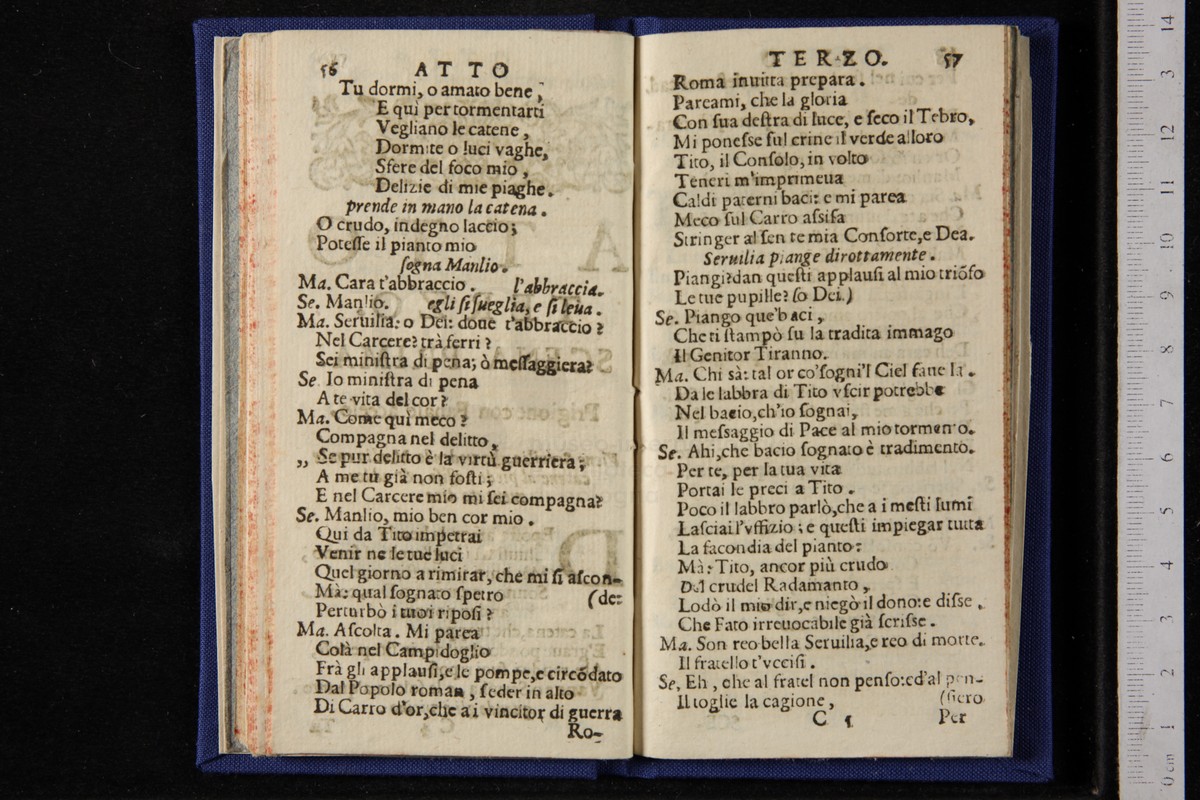 56 ATTO
Tu dormi, o amato bene;
E quì per tormentarti
Vegliano le catene,
Dormite o luci vaghe,
Sfere del foco mio,
Delizie di mie piaghe.
prende in mano la catena.
O crudo, indegno laccio;
Poteſſe il pianto mio
ſogna Manlio.
Ma. Cara t'abbraccio. l'abbraccia.
Se. Manlio. egli ſi ſueglia, e ſi leua.
Ma. Seruilia: o Dei: doue t'abbraccio?
Nel Carcere? trà ferri?
Sei miniſtra di pena; ò meſſaggiera?
Se. Io miniſtra di pena
A te vita del cor?
Ma. Come quì meco?
Compagna nel delitto,
„ Se pur delitto è la virtù guerriera;
A me tu già non foſti;
E nel Carcere mio mi ſei compagna?
Se. Manlio, mio ben cor mio.
Qui da Tito impetrai
Venir ne le tue luci
Quel giorno a rimirar, che mi ſi aſcon-
Mà: qual ſognato ſpetro (de:
Perturbò i tuoi ripoſi?
Ma. Aſcolta. Mi parea
Colà nel Campidoglio
Frà gli applauſi, e le pompe, e circõdato
Dal Popolo roman, ſeder in alto
Di Carro d'or, che a i vincitor di guerra
Ro-
TERZO. 57
Roma inuitta prepara.
Pareami, che la gloria
Con ſua deſtra di luce, e ſeco il Tebro,
Mi poneſse ſul crine il verde alloro
Tito, il Conſolo, in volto
Teneri m'imprimeua
Caldi paterni baci: e mi parea
Meco ſul Carro aſsiſa
Stringer al ſen te mia Conſorte, e Dea.
Seruilia piange dirottamente.
Piangi? dan queſti applauſi al mio triõfo
Le tue pupille? (o Dei.)
Se. Piango que' baci,
Che ti ſtampò ſu la tradita immago
Il Genitor Tiranno.
Ma. Chi sà: tal or co' ſogni'l Ciel fauella.
Da le labbra di Tito vſcir potrebbe
Nel bacio, ch'io ſognai,
Il meſsaggio di Pace al mio tormento.
Se. Ahi, che bacio ſognato è tradimento.
Per te, per la tua vita
Portai le preci a Tito.
Poco il labbro parlò, che a i meſti lumi
Laſciai l'vffizio; e queſti impiegar tutta
La facondia del pianto:
Mà: Tito, ancor più crudo
Del crudel Radamanto,
Lodò il mio dir, e niegò il dono: e diſse,
Che Fato irreuocabile già ſcriſse.
Ma. Son reo bella Seruilia, e reo di morte.
Il fratello t'vcciſi.
Se, Eh, che al fratel non penſo: ed'al pen-
Il toglie la cagione, (ſiero
C Per